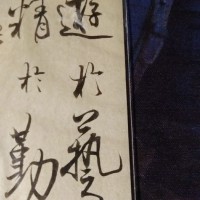 遊於藝
精於勤